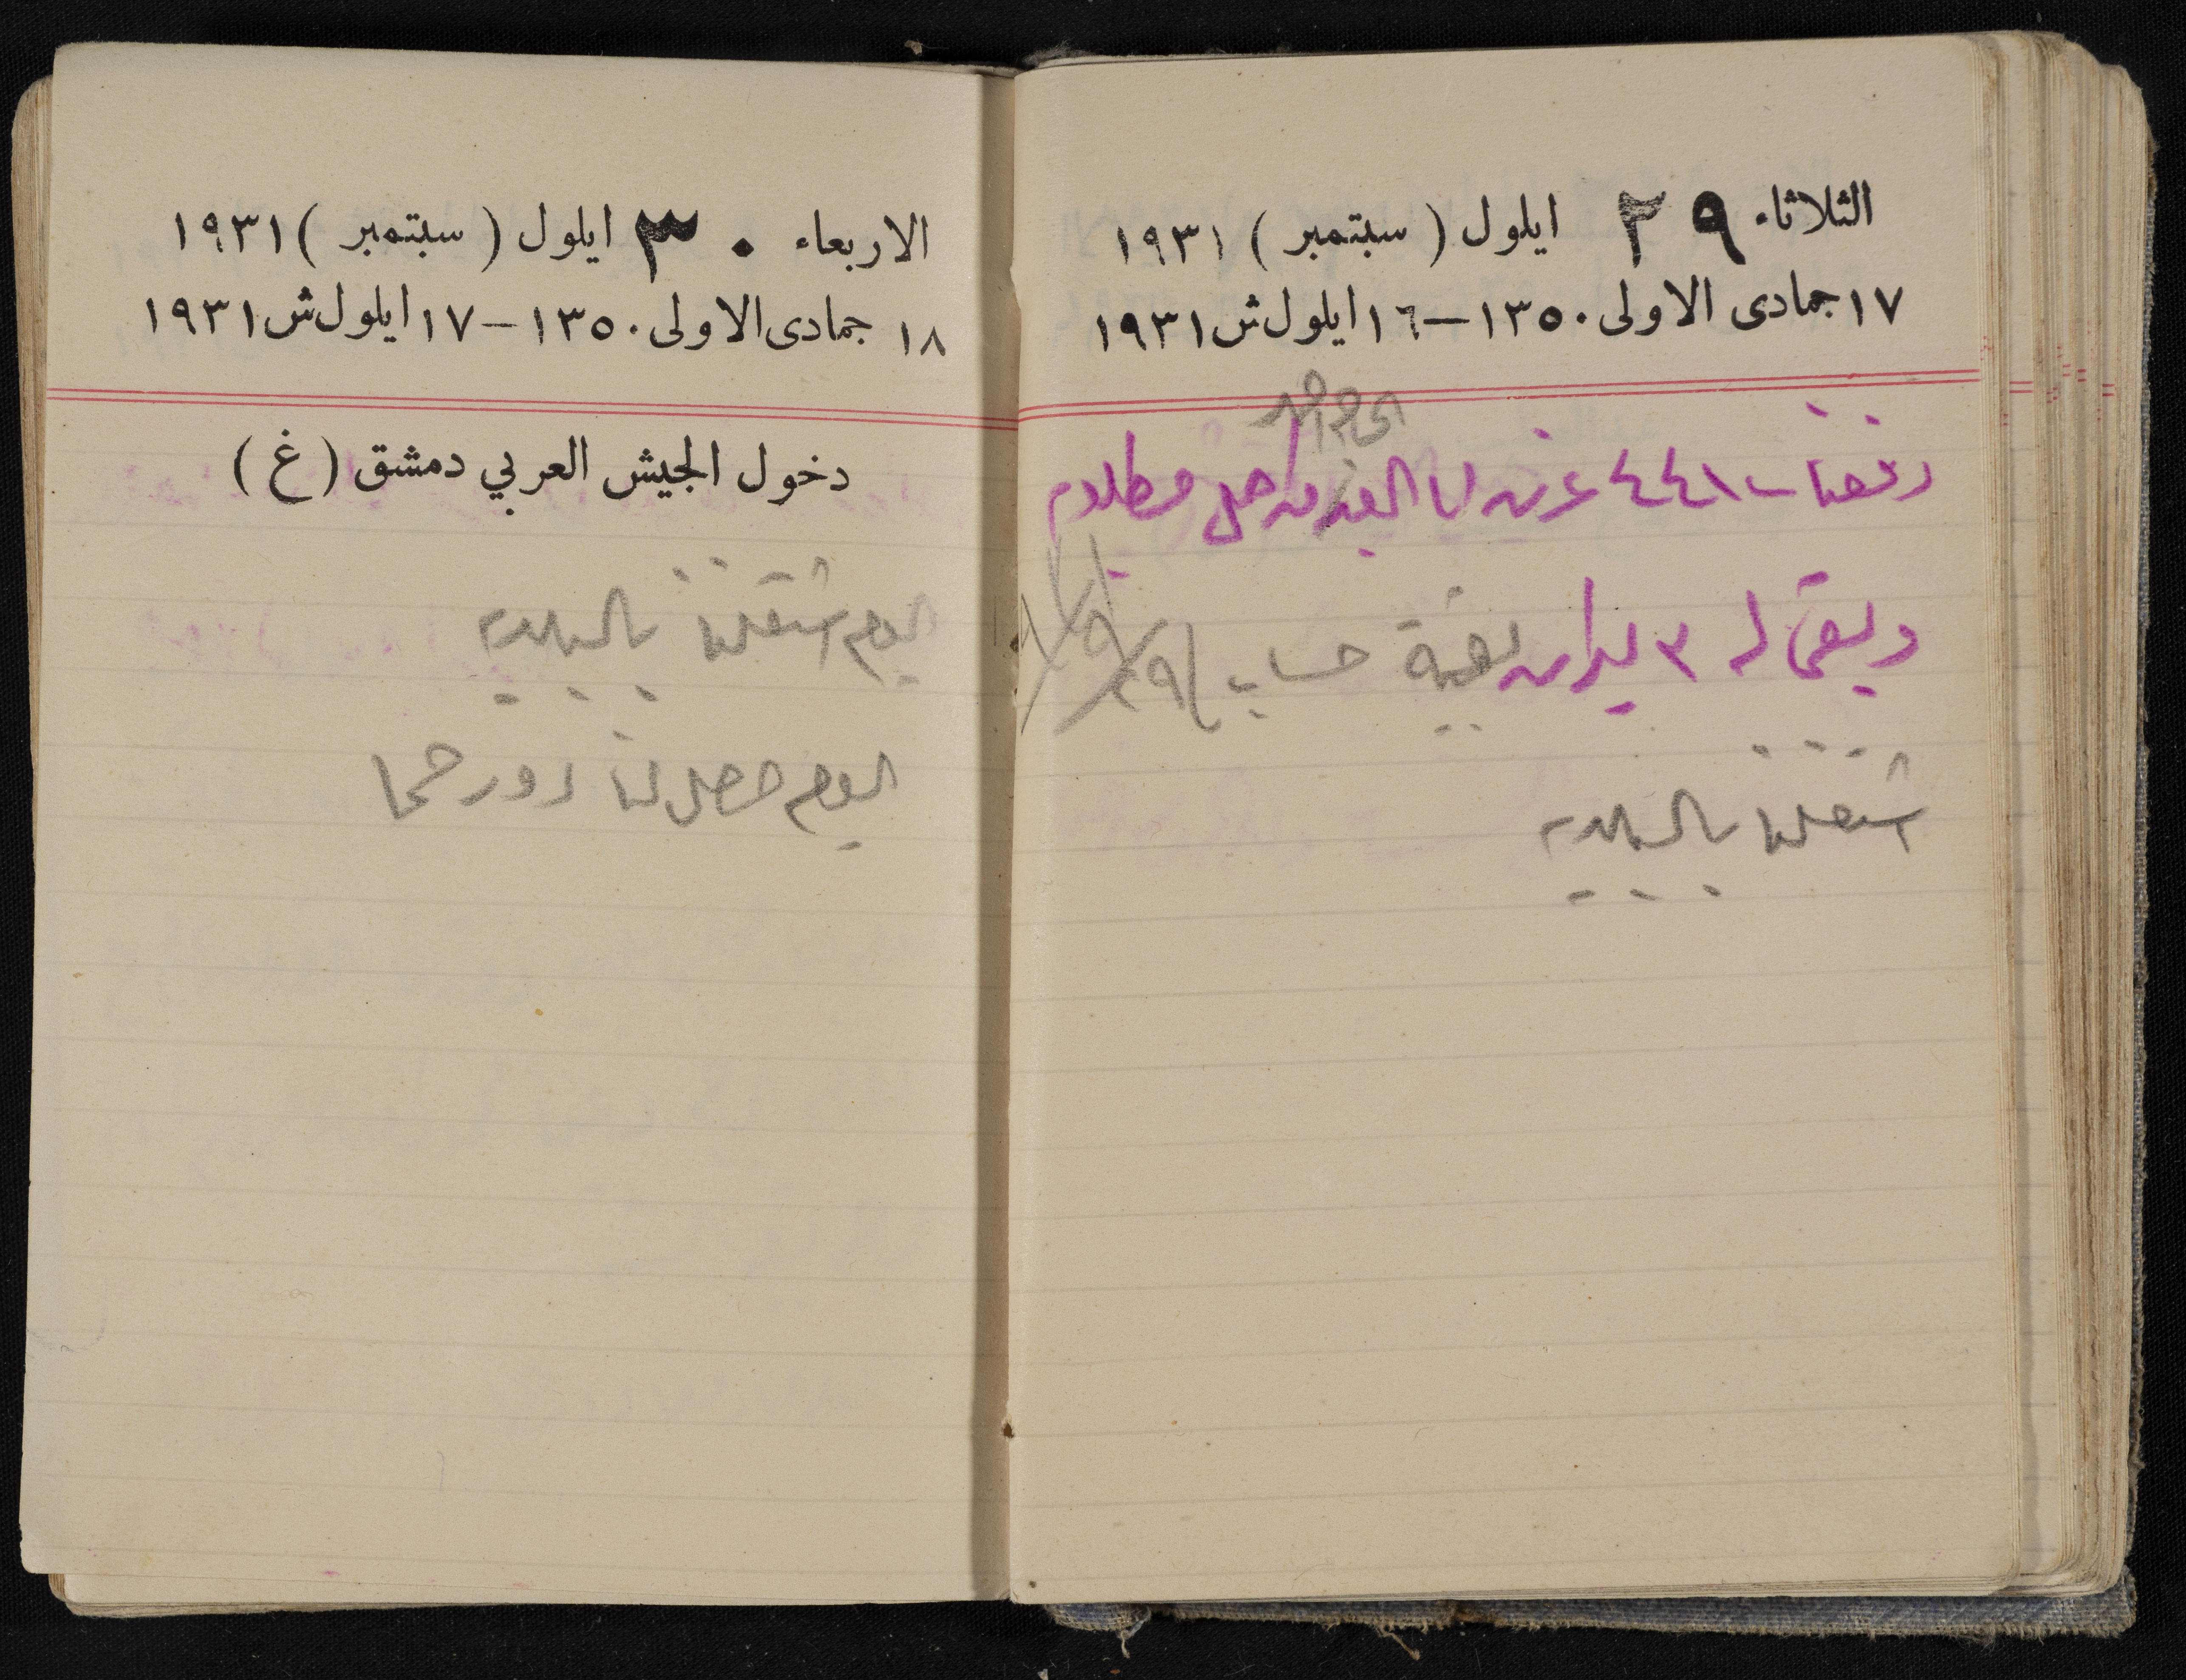 الثلاثاء ٢٩ ايلول ( سبتمبر ) ١٩٣١
١٧ جمادى الاولى ١٣٥٠ — ١٦ ايلول ش ١٩٣١
دفعنا ٤٤١
ويبقى له ٣ ليرات بقية حساب
اشتغلنا بالبلديه
الاربعاء ٣٠ ايلول ( سبتمبر ) ١٩٣١
١٨ جمادى الاولى ١٣٥٠ — ١٧ ايلول ش ١٩٣١
دخول الجيش العربي دمشق ( غ )
اليوم اشتغلنا بالبلديه
اليوم حصل لنا دور حما